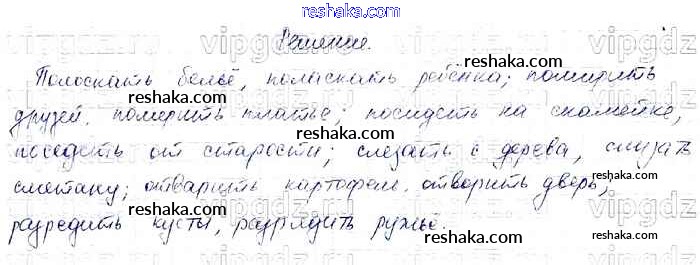 reshaka.com
Решение.
Полоскать бельё, поласкать ребёнка; помирить
reshaka.com reshaka.com
друзей, померить платье; посидеть на скамейке,
reshaka.com reshaka.com
поседеть от старости; слезать с дерева, слизать
reshaka.com
сметану; отварить картофель, отворить дверь,
reshaka.com reshaka.com
разредить кусты, разрядить ружьё.
reshaka.com